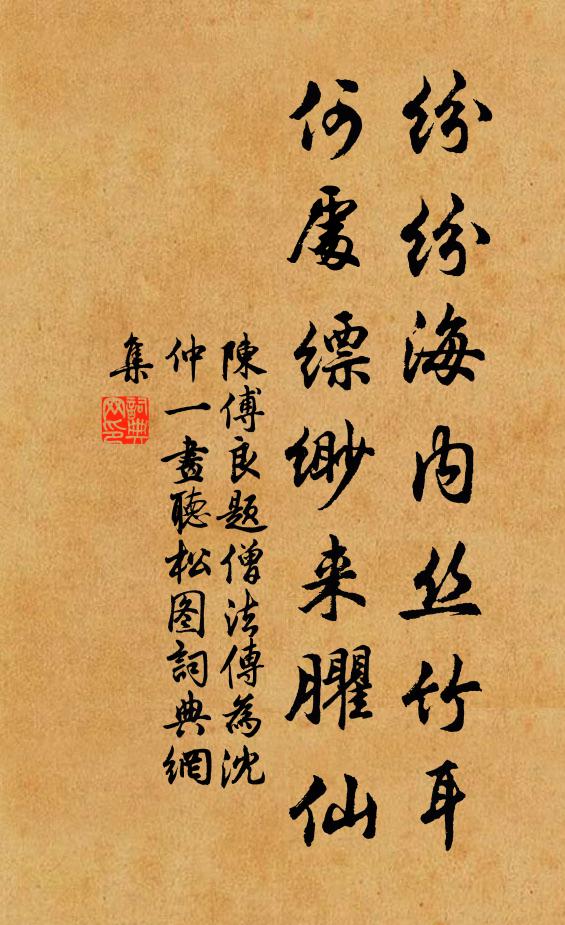 纷纷海内丝竹耳
何處缥缈来臞仙
陳傅良题僧法傅為沈
仲一畫聽松图詞典網
集
詞典
网印